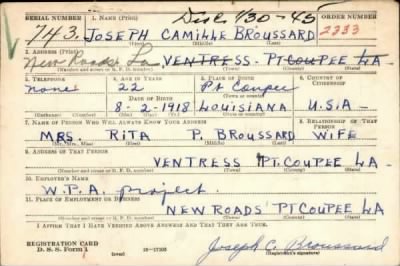 Disc 1/30-45
SERIAL NUMBER 1. NAME (Print) ORDER NUMBER
743. JOSEPH CAMILLE BROUSSARD 2333
2. ADDRESS (Print)
New Roads La VENTRESS. PT COUPEE LA-
(Number and street or R. F. D. number) (Town) (County) (State)
3. TELEPHONE 4. AGE IN YEARS 5. PLACE OF BIRTH 6. COUNTRY OF CITIZENSHIP
none 22 Pt Coupee
DATE OF BIRTH (Town or county)
8-2-1918 LOUISIANA U.S.A-
(Exchange) (Number) (Mo.) (Day) (Yr.) (State or country)
7. NAME OF PERSON WHO WILL ALWAYS KNOW YOUR ADDRESS 8. RELATIONSHIP OF THAT PERSON
MRS. RITA P. BROUSSARD WIFE
(Mr., Mrs., Miss) (First) (Middle) (Last)
9. ADDRESS OF THAT PERSON
VENTRESS PT. COUPEE LA-
(Number and street or R. F. D. number) (Town) (County) (State)
10. EMPLOYER'S NAME
W.P.A. project.
11. PLACE OF EMPLOYMENT OR BUSINESS
NEW ROADS PT COUPEE LA
(Number and street or R. F. D. number) (Town) (County) (State)
I AFFIRM THAT I HAVE VERIFIED ABOVE ANSWERS AND THAT THEY ARE TRUE.
REGISTRATION CARD
D. S. S. Form 1 (over) Joseph C. Broussard
(Registrant's signature)